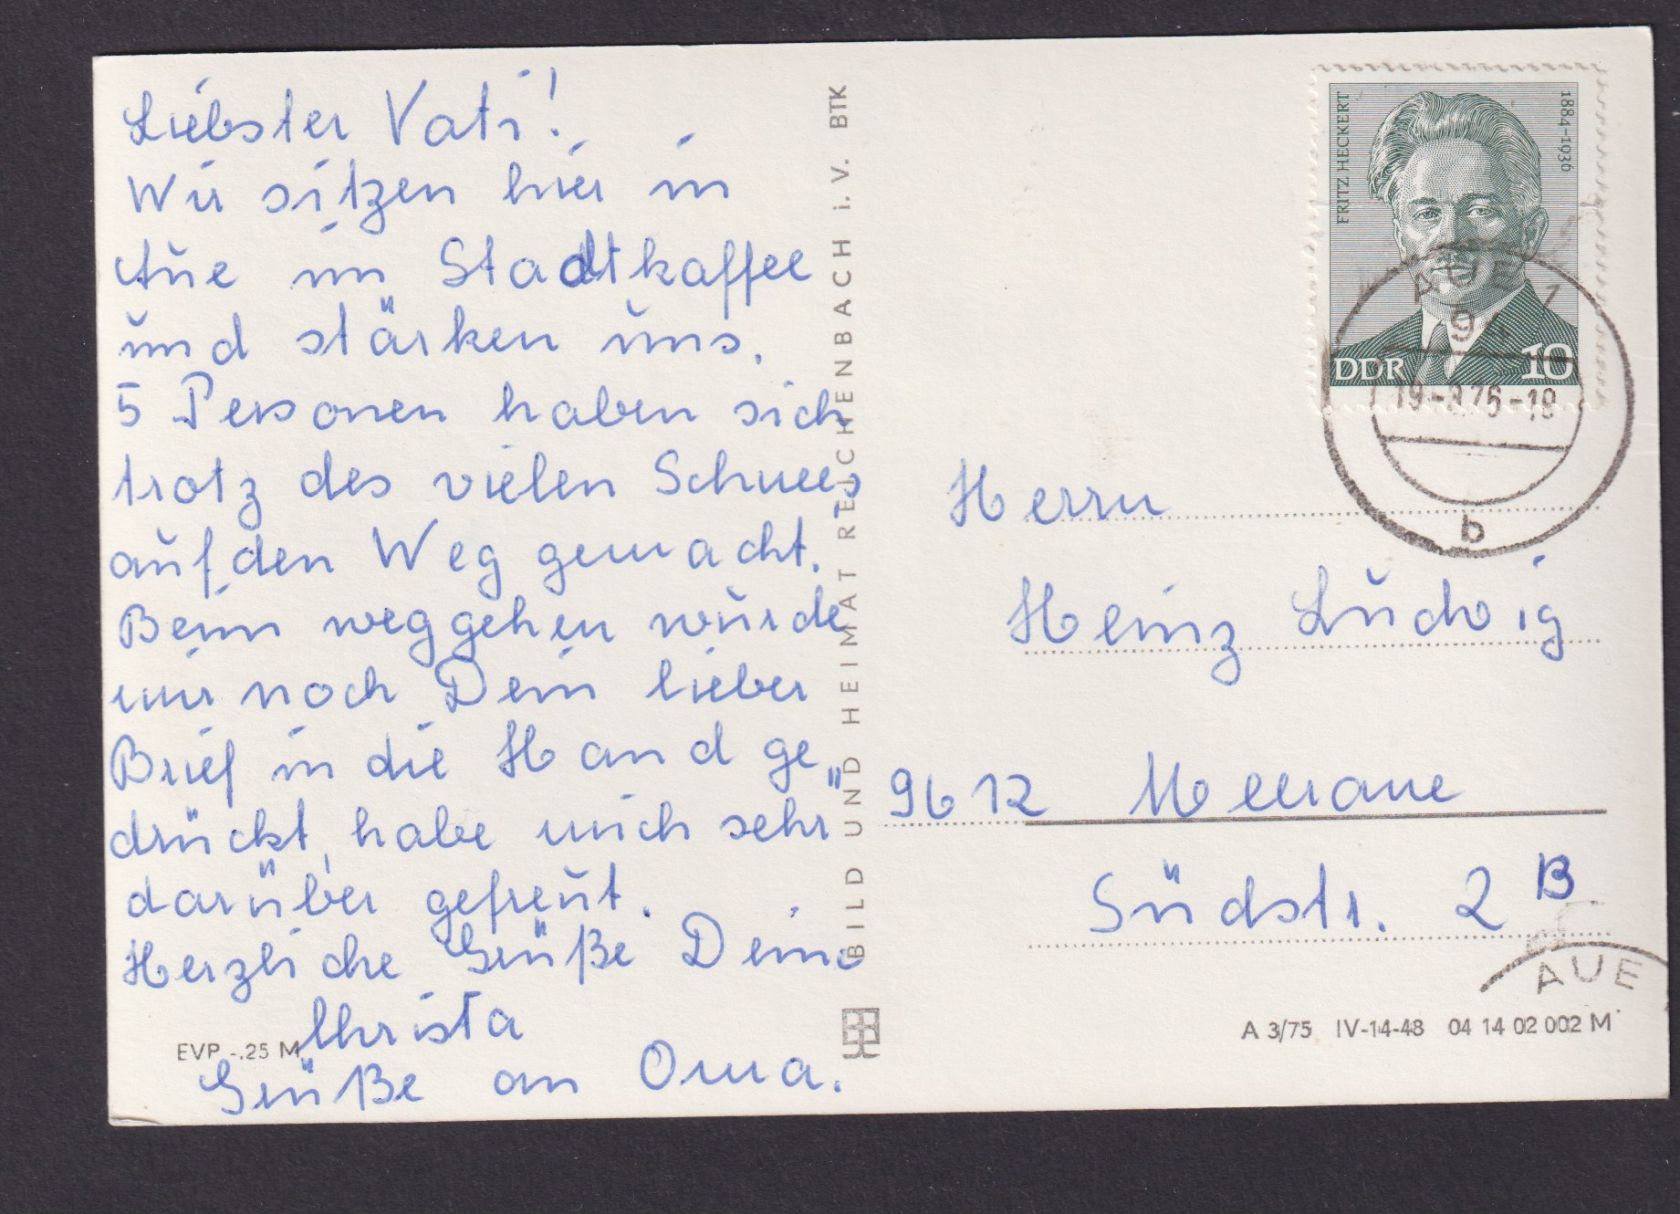 Liebster Vati!
Wir sitzen hier in
Aue im Stadtkaffee
und stärken uns.
5 Personen haben sich
trotz des vielen Schnees
auf den Weg gemacht.
Beim weggehen wurde
mir noch Dein lieber
Brief in die Hand ge„
drückt, habe mich sehr
darüber gefreut.
Herzliche Grüße Deine
Christa
Grüße an Oma.
EVP -.25 M
BILD UND HEIMAT REICHENBACH i.V. BTK
FRITZ HECKERT
1884-1936
DDR 10
AUE 1
94
19-3.76-18
b
Herrn
Heinz Ludwig
9612 Meerane
Südstr. 2 B
AUE
A 3/75 IV-14-48 04 14 02 002 M